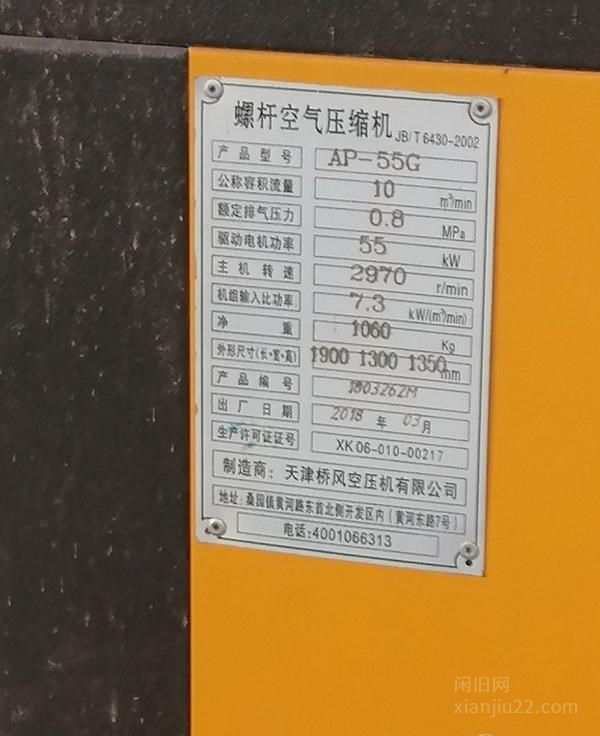 螺杆空气压缩机 JB/T 6430-2002
产品型号 AP-55G
公称容积流量 10 m³/min
额定排气压力 0.8 MPa
驱动电机功率 55 kW
主机转速 2970 r/min
机组输入比功率 7.3 kW/(m³/min)
净重 1060 Kg
外形尺寸(长·宽·高) 1900 1300 1350 mm
产品编号 180326ZM
出厂日期 2018 年 03 月
生产许可证证号 XK06-010-00217
制造商：天津桥风空压机有限公司
地址：桑园镇黄河路东首北侧开发区内（黄河东路7号）
电话:4001066313
闲旧网
xianjiu22.com